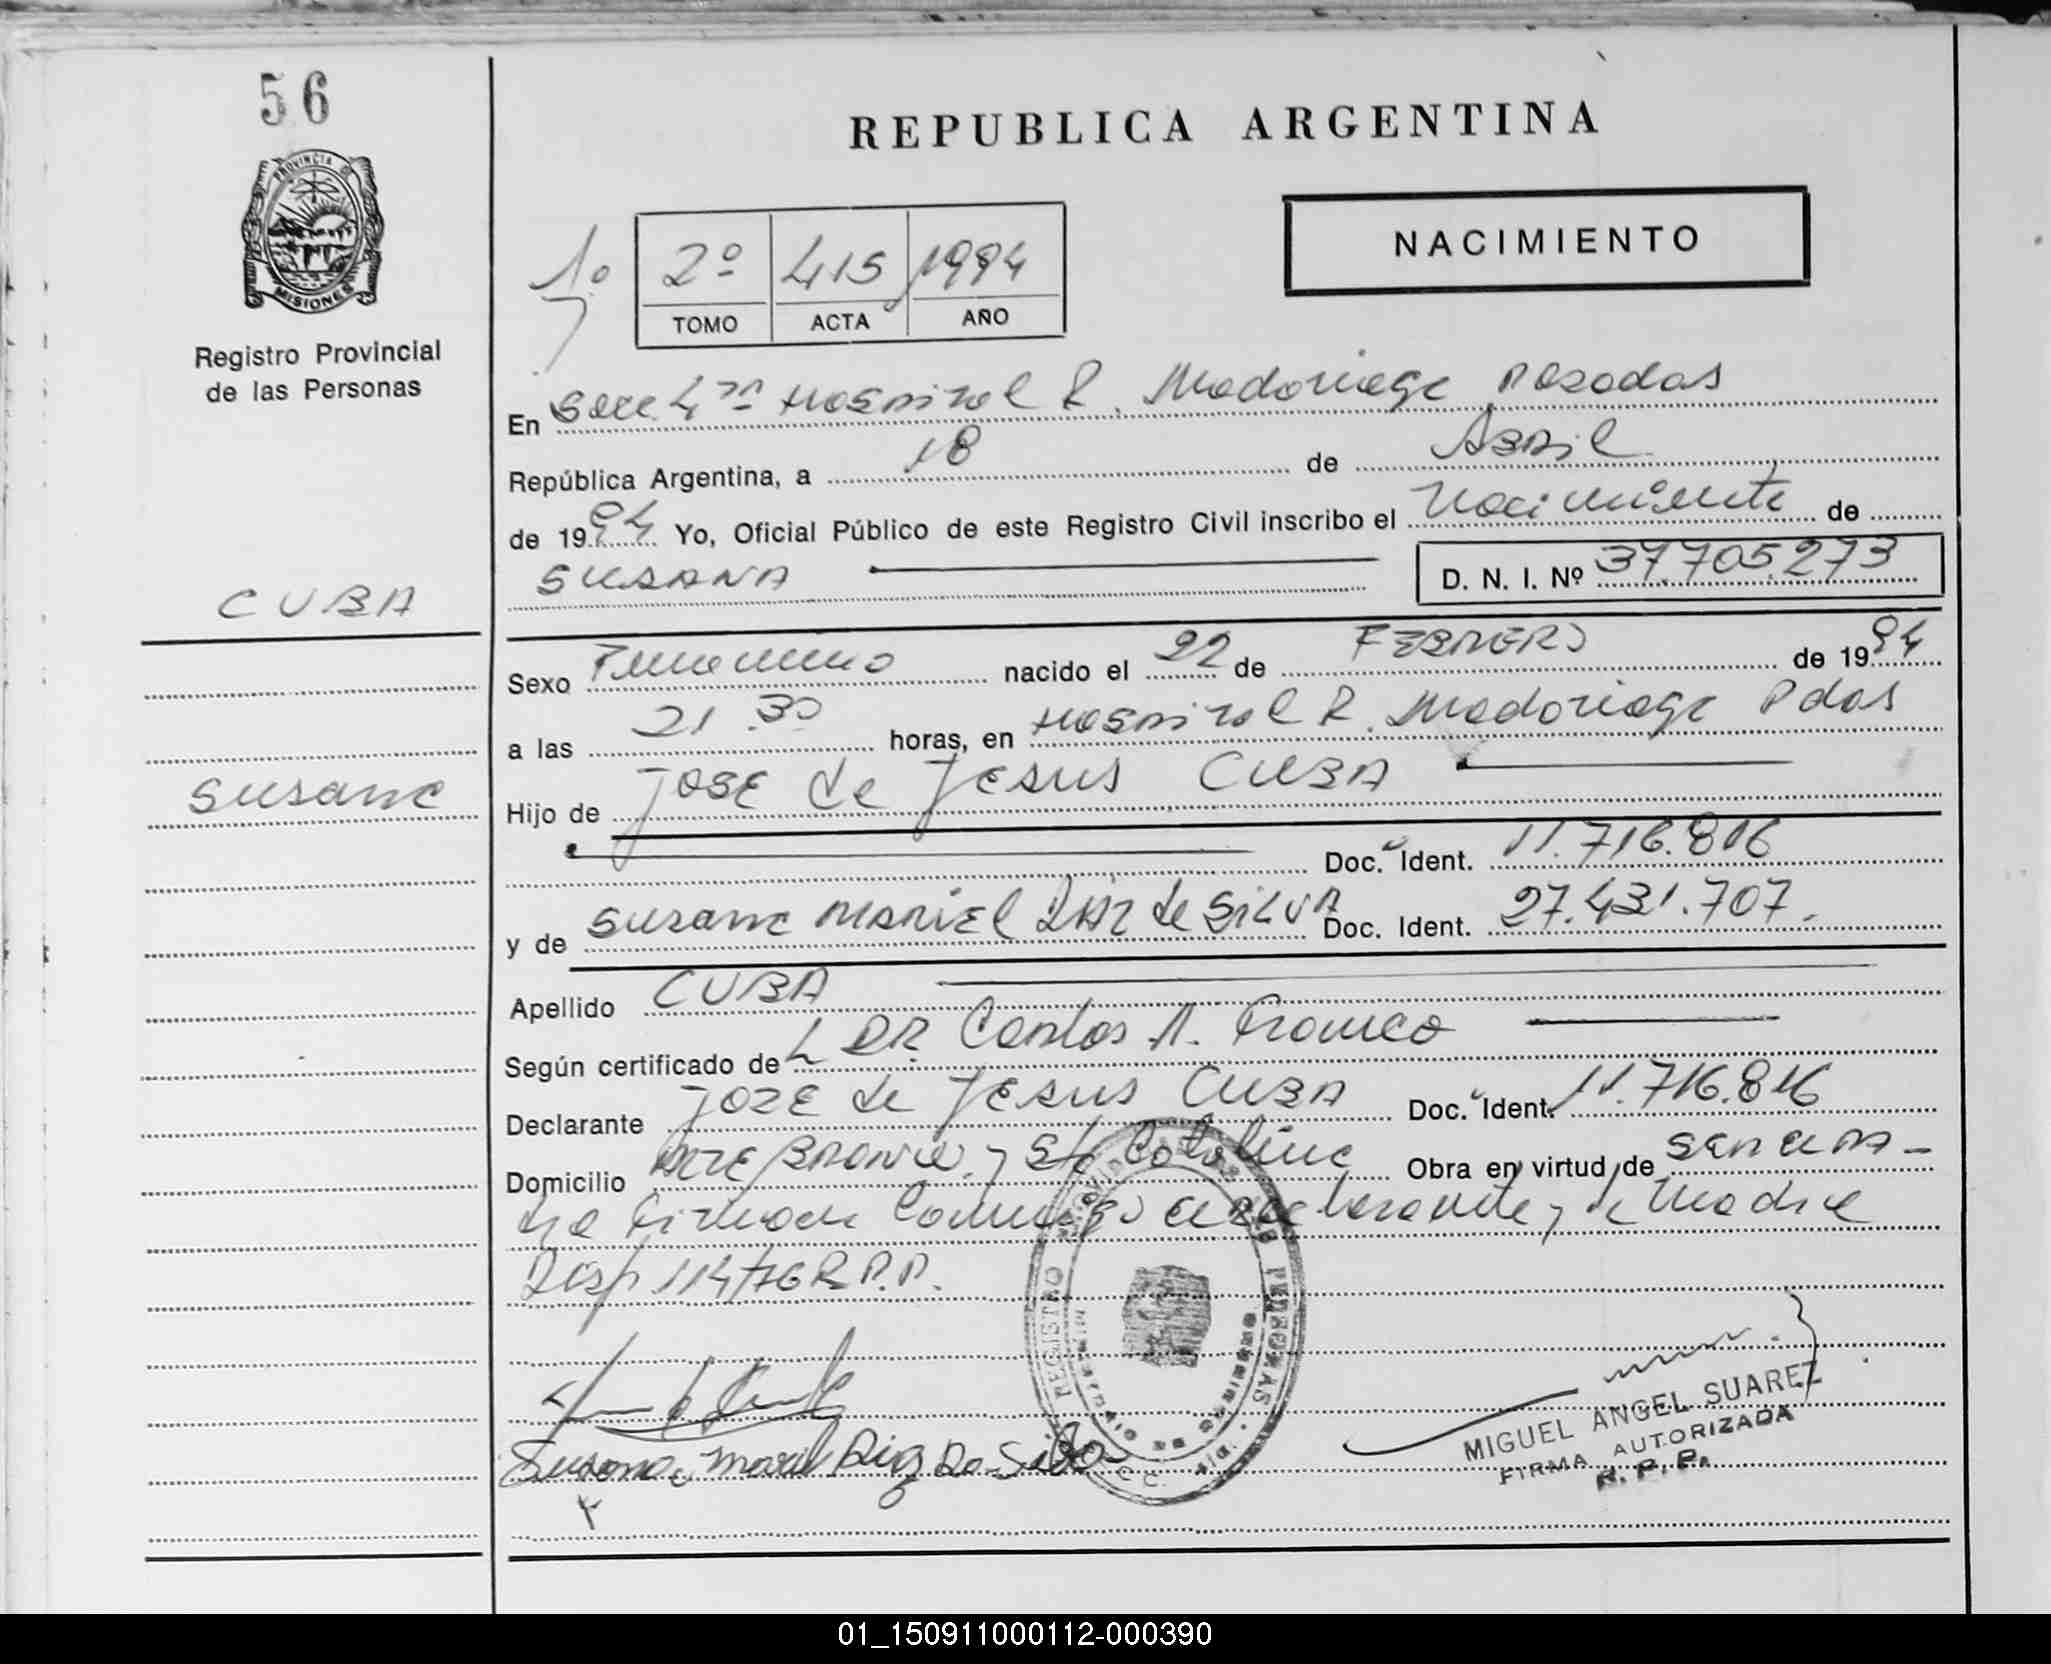 56
REPUBLICA ARGENTINA
PROVINCIA DE MISIONES
NACIMIENTO
1º
2º 415 1994
TOMO ACTA AÑO
Registro Provincial
de las Personas
En Secc 4ta Hospital R. Madariaga Posadas
República Argentina, a 18 de Abril
de 1994 Yo, Oficial Público de este Registro Civil inscribo el Nacimiento de
SUSANA D. N. I. Nº 37.705.273
CUBA
Sexo Femenino nacido el 22 de FEBRERO de 1994
a las 21.30 horas, en Hospital R. Madariaga Pdas
Susana
Hijo de JOSE de JESUS CUBA
Doc. Ident. 11.716.816
y de Susana MARIEL DIAZ de SILVA Doc. Ident. 27.431.707.
Apellido CUBA
Según certificado de L DR. Carlos A. Franco
Declarante JOSE de JESUS CUBA Doc. Ident. 11.716.816
Domicilio Alte BROWN y Sta Catalina Obra en virtud de
Firman Conmigo el declarante y la Madre
Disp 114/76 R.P.P.
REGISTRO PERSONAS
Susana Mariel Diaz Da Silva
MIGUEL ANGEL SUAREZ
FIRMA AUTORIZADA
R. P. P.
01_150911000112-000390